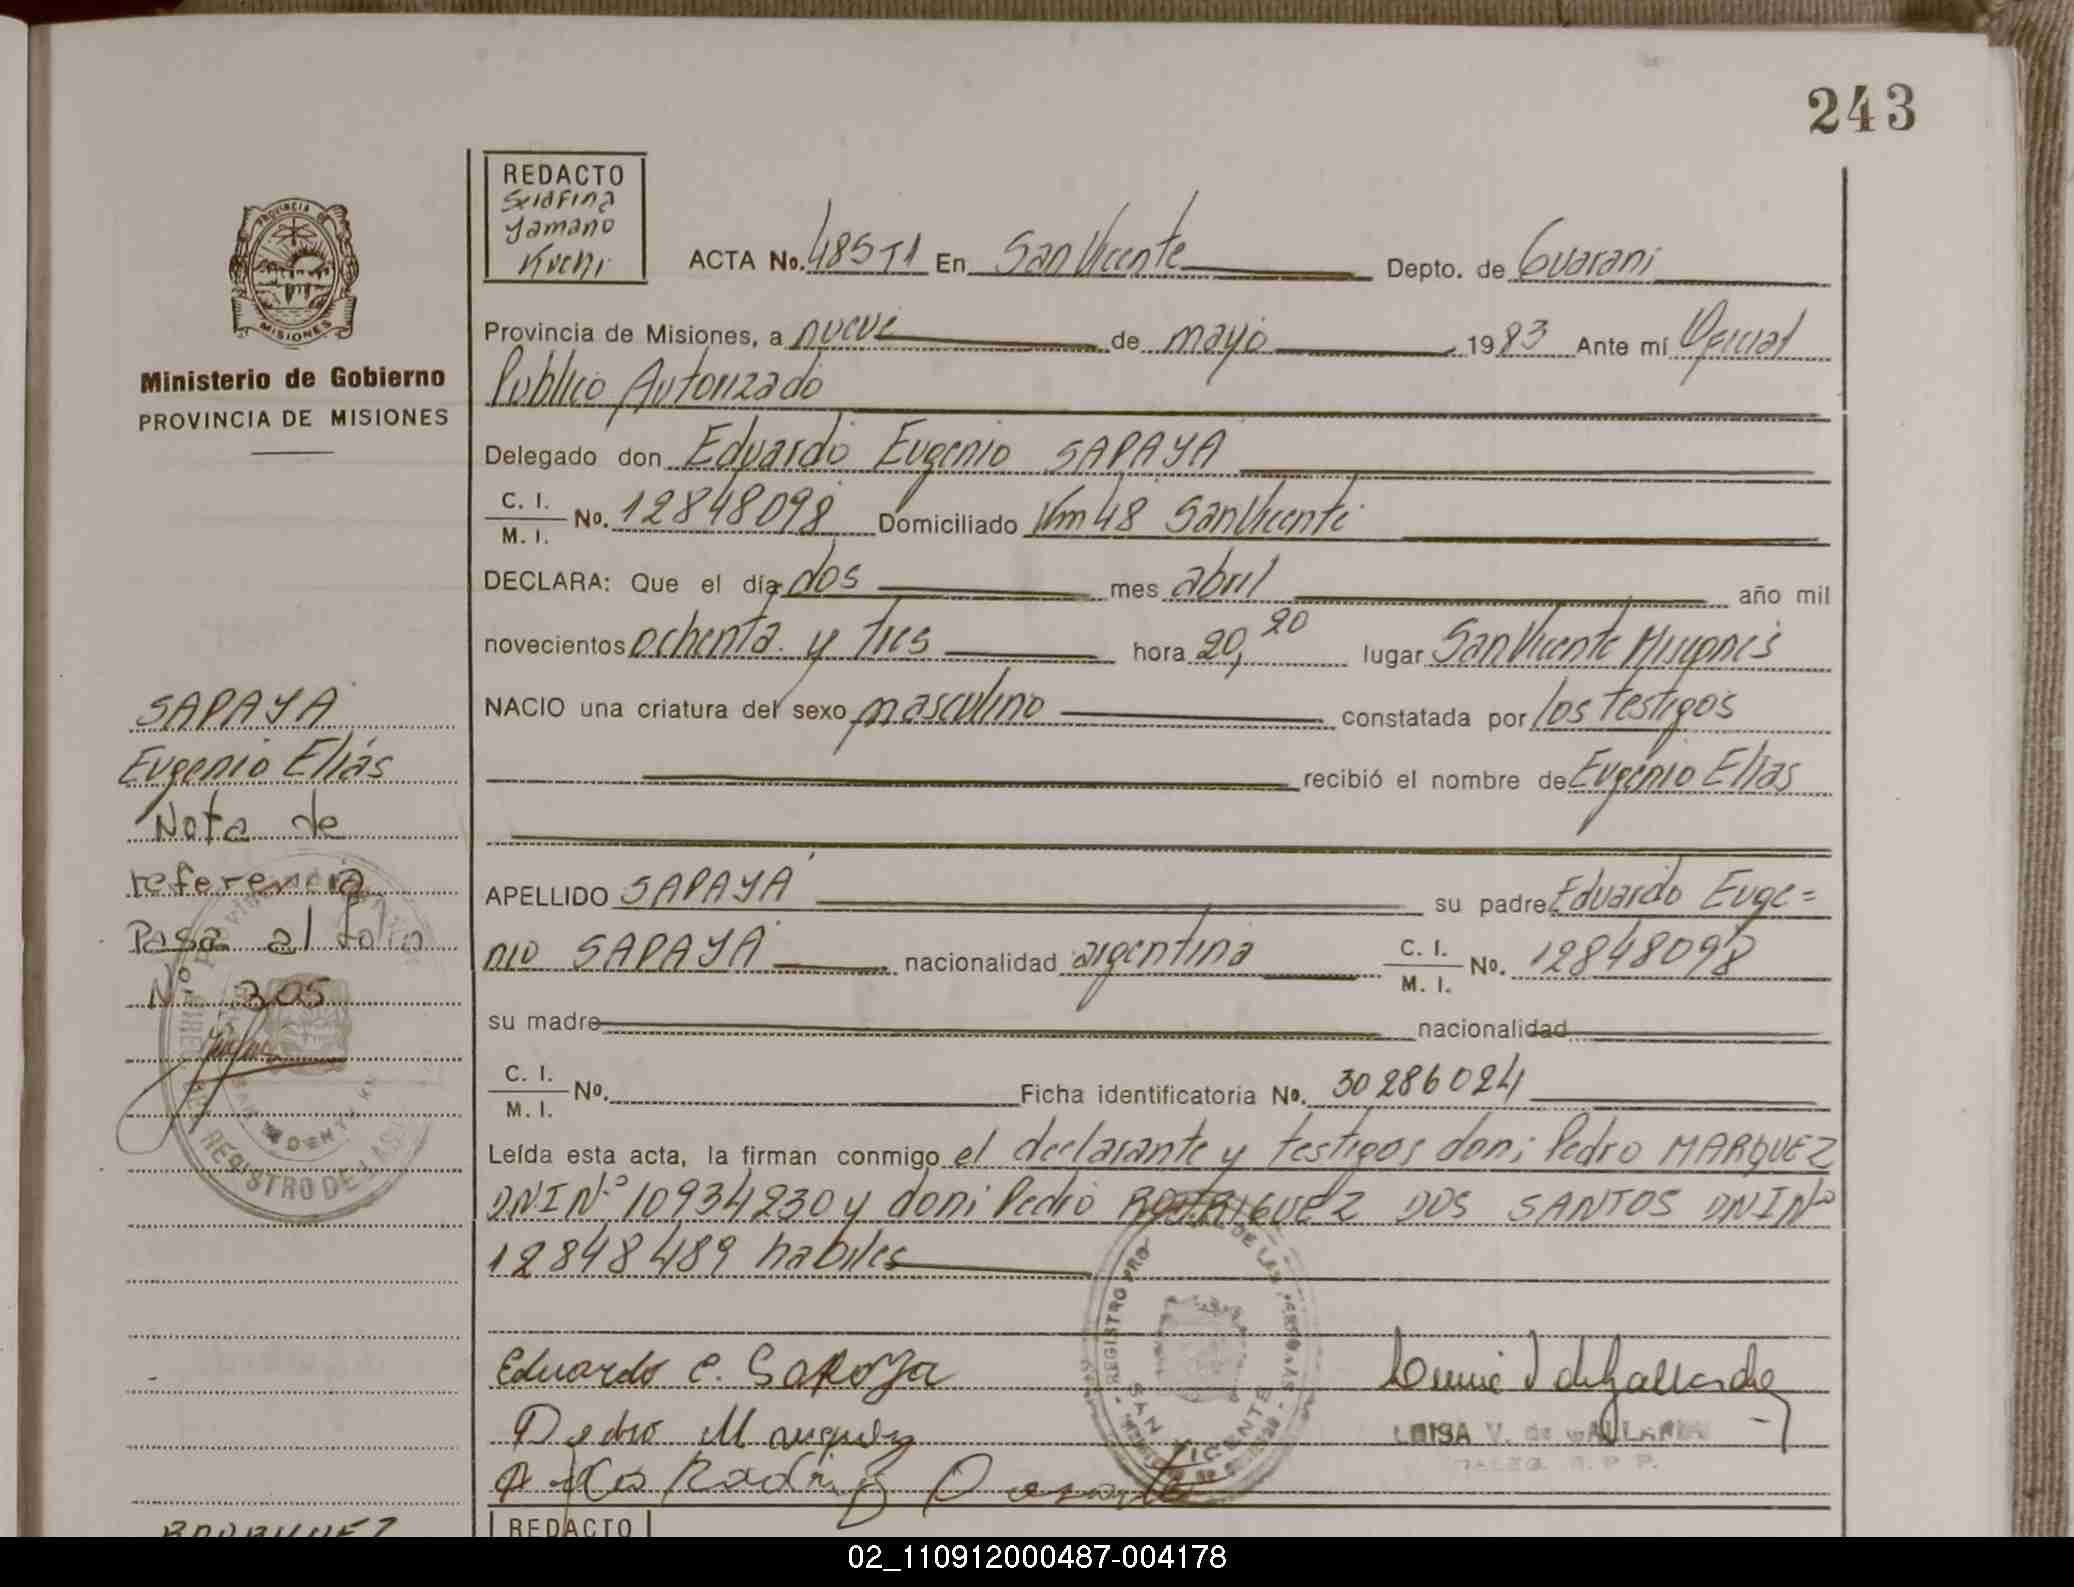 243
REDACTO
Serafina
Yamano
Kuchi
ACTA No. 485 T1 En San Vicente Depto. de Guarani
Provincia de Misiones, a nueve de mayo 1983 Ante mí Oficial
Publico Autorizado
Delegado don Eduardo Eugenio SAPAYA
C. I.
M. I. No. 12848098 Domiciliado Km 48 San Vicente
DECLARA: Que el día dos mes abril año mil
novecientos ochenta y tres hora 20,20 lugar San Vicente Misiones
NACIO una criatura del sexo masculino constatada por los testigos
recibió el nombre de Eugenio Elias
APELLIDO SAPAYA su padre Eduardo Euge=
nio SAPAYA nacionalidad argentina C. I.
M. I. No. 12848098
su madre nacionalidad
C. I.
M. I. No. Ficha identificatoria No. 30286024
Leída esta acta, la firman conmigo el declarante y testigos don: Pedro MARQUEZ
DNI N° 10934230 y don: Pedro RODRIGUEZ DOS SANTOS DNI N°
12848489 habiles
Eduardo E. Sapaya
Pedro Marquez
LUISA V. de GALLARDO
REGISTRO PRO DE LAS PERSONAS
SAN VICENTE
REDACTO
MISIONES
Ministerio de Gobierno
PROVINCIA DE MISIONES
SAPAYA
Eugenio Elias
Nota de
referencia
Pasa al folio
N° 305
REGISTRO DE LAS
RODRIGUEZ
02_110912000487-004178